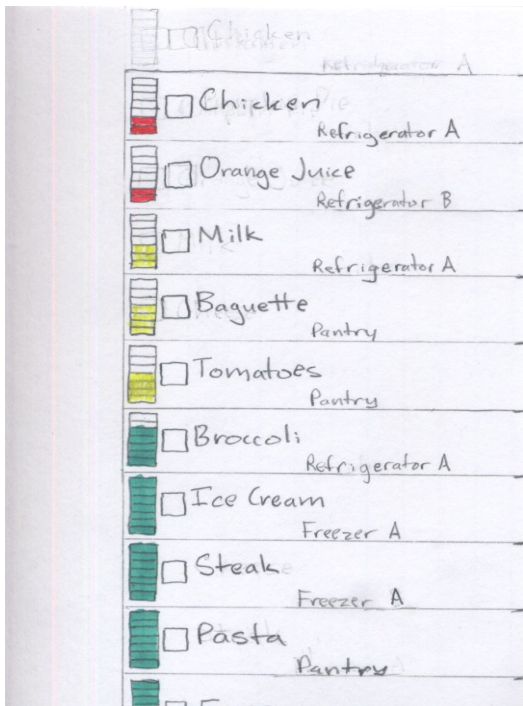 Chicken
Refrigerator A
Chicken
Refrigerator A
Orange Juice
Refrigerator B
Milk
Refrigerator A
Baguette
Pantry
Tomatoes
Pantry
Broccoli
Refrigerator A
Ice Cream
Freezer A
Steak
Freezer A
Pasta
Pantry